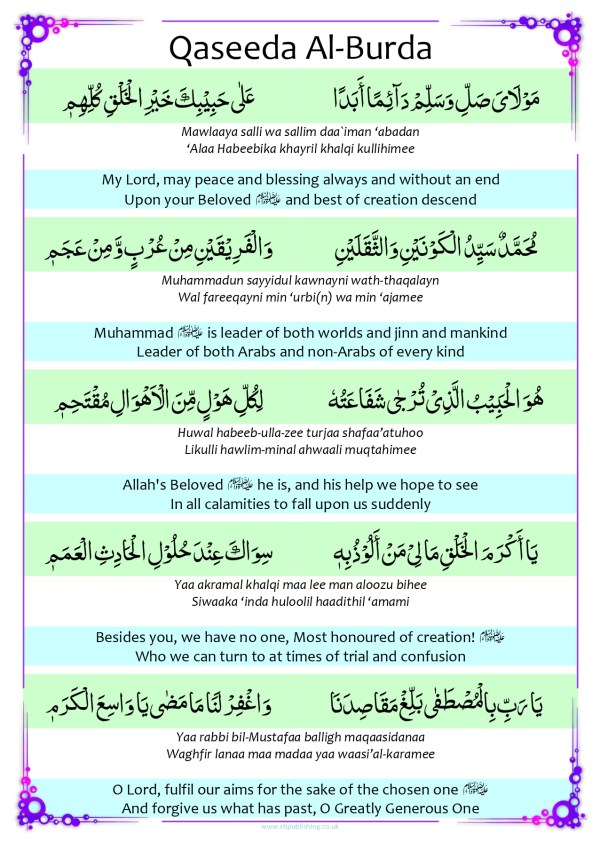 Qaseeda Al-Burda
مَوْلَايَ صَلِّ وَسَلِّمْ دَآئِمًا أَبَدًا عَلٰى حَبِيْبِكَ خَيْرِ الْخَلْقِ كُلِّهِمِ
Mawlaaya salli wa sallim daa`iman ‘abadan
‘Alaa Habeebika khayril khalqi kullihimee
My Lord, may peace and blessing always and without an end
Upon your Beloved ﷺ and best of creation descend
مُحَمَّدٌ سَيِّدُ الْكَوْنَيْنِ وَالثَّقَلَيْنِ وَالْفَرِيْقَيْنِ مِنْ عُرْبٍ وَّمِنْ عَجَمِ
Muhammadun sayyidul kawnayni wath-thaqalayn
Wal fareeqayni min ‘urbi(n) wa min ‘ajamee
Muhammad ﷺ is leader of both worlds and jinn and mankind
Leader of both Arabs and non-Arabs of every kind
هُوَ الْحَبِيْبُ الَّذِيْ تُرْجٰى شَفَاعَتُهٗ لِكُلِّ هَوْلٍ مِّنَ الْاَهْوَالِ مُقْتَحِمِ
Huwal habeeb-ulla-zee turjaa shafaa’atuhoo
Likulli hawlim-minal ahwaali muqtahimee
Allah's Beloved ﷺ he is, and his help we hope to see
In all calamities to fall upon us suddenly
يَا أَكْرَمَ الْخَلْقِ مَا لِيْ مَنْ أَلُوْذُ بِهٖ سِوَاكَ عِنْدَ حُلُوْلِ الْحَادِثِ الْعَمَمِ
Yaa akramal khalqi maa lee man aloozu bihee
Siwaaka ‘inda huloolil haadithil ‘amami
Besides you, we have no one, Most honoured of creation! ﷺ
Who we can turn to at times of trial and confusion
يَا رَبِّ بِالْمُصْطَفٰى بَلِّغْ مَقَاصِدَنَا وَاغْفِرْ لَنَا مَا مَضٰى يَا وَاسِعَ الْكَرَمِ
Yaa rabbi bil-Mustafaa balligh maqaasidanaa
Waghfir lanaa maa madaa yaa waasi’al-karamee
O Lord, fulfil our aims for the sake of the chosen one ﷺ
And forgive us what has past, O Greatly Generous One
www.stlpublishing.co.uk